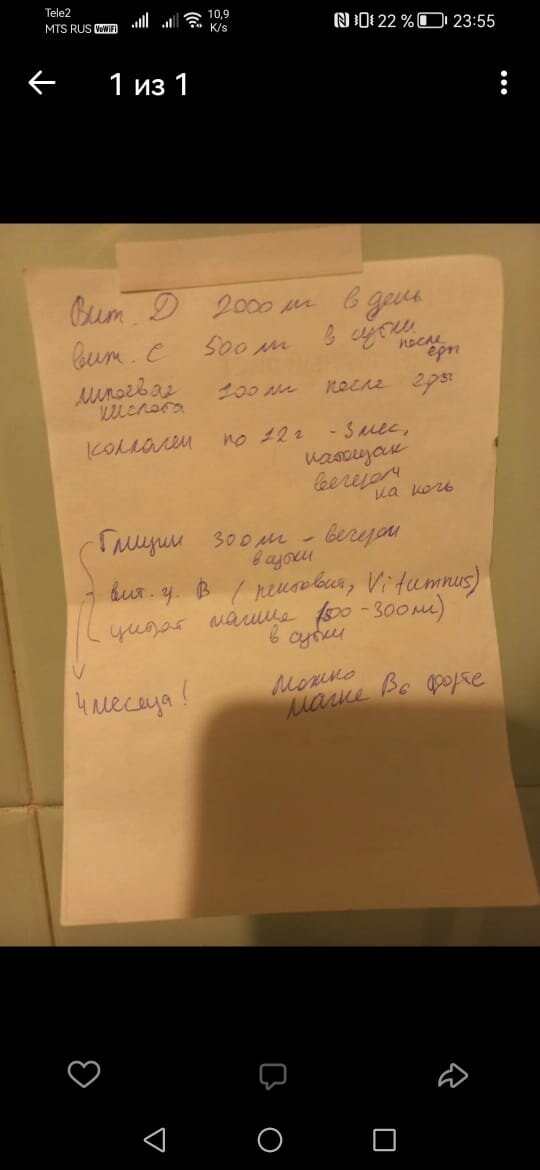 Tele2
MTS RUS VoWiFi
10,9
K/s
22 %
23:55
1 из 1
Вит. Д 2000 мг в день
вит. С 500 мг в сутки после еды
липоевая кислота 100 мг после еды
Коллаген по 12 г - 3 мес.
натощак
вечером
на ночь
Глицин 300 мг - вечером
в сутки
вит. гр. В (пентовит, Vitumnus)
цитрат магния (500-300 мг)
в сутки
4 месяца!
Можно
Магне В6 форте